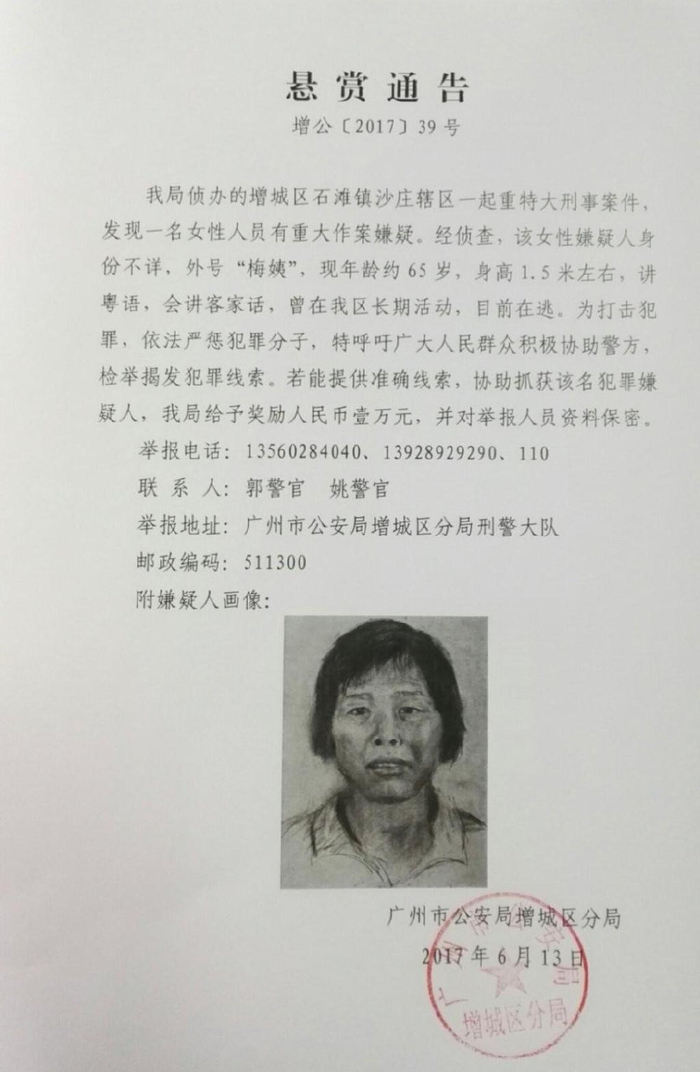 悬赏通告
增公〔2017〕39号
我局侦办的增城区石滩镇沙庄辖区一起重特大刑事案件，
发现一名女性人员有重大作案嫌疑。经侦查，该女性嫌疑人身
份不详，外号“梅姨”，现年龄约65岁，身高1.5米左右，讲
粤语，会讲客家话，曾在我区长期活动，目前在逃。为打击犯
罪，依法严惩犯罪分子，特呼吁广大人民群众积极协助警方，
检举揭发犯罪线索。若能提供准确线索，协助抓获该名犯罪嫌
疑人，我局给予奖励人民币壹万元，并对举报人员资料保密。
举报电话：13560284040、13928929290、110
联 系 人：郭警官 姚警官
举报地址：广州市公安局增城区分局刑警大队
邮政编码：511300
附嫌疑人画像：
广州市公安局增城区分局
2017年6月13日
广州市公安局
增城区分局